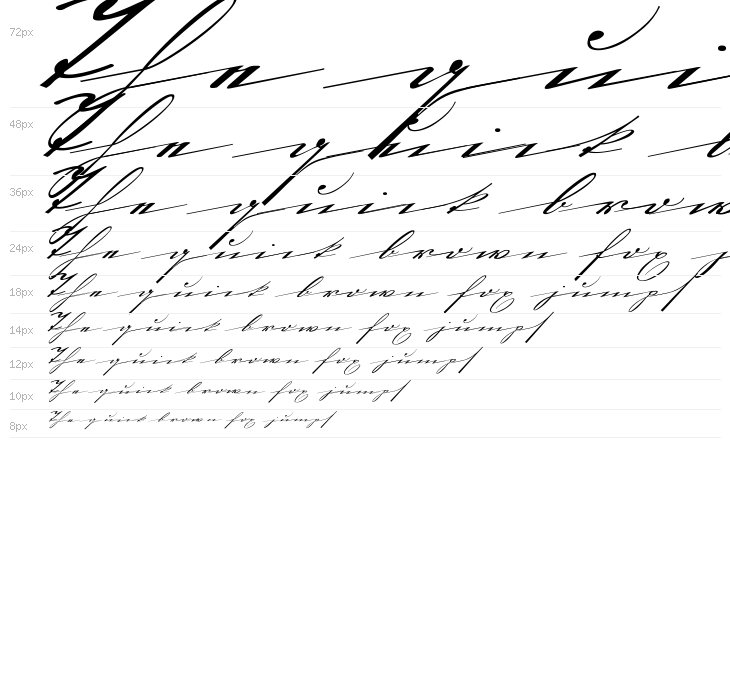 72px The qui
48px The quick b
36px The quick brow
24px The quick brown fox j
18px The quick brown fox jumps
14px The quick brown fox jumps
12px The quick brown fox jumps
10px The quick brown fox jumps
8px The quick brown fox jumps